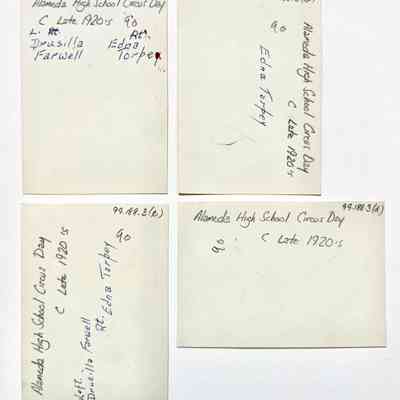 Alameda High School Circus Day
C Late 1920's 90
L. Rt.
Drusilla Edna
Farwell Torpey
Alameda High School Circus Day
C Late 1920's
90
Edna Torpey
99.188.3(b)
Alameda High School Circus Day
C Late 1920's
90
Left.
Drusilla Farwell
Rt. Edna Torpey
99.188.3(a)
Alameda High School Circus Day
90 C Late 1920's